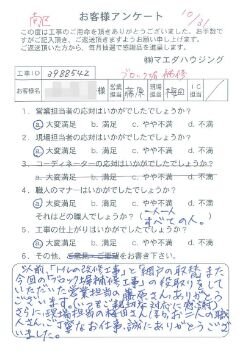 南区
10/31
お客様アンケート
この度は工事のご用命を頂きありがとうございました。お手数で
すがご記入頂き、ご返送頂きますようお願い申し上げます。
ご返送頂いた方から、毎月抽選で感謝品を進呈します。
㈱マエダハウジング
工事ID 2988542 ブロック塀補修
お客様名 様 営業担当 藤原 現場担当 植田 IC担当
1. 営業担当者の応対はいかがでしたでしょうか?
a.大変満足 b.満足 c.やや不満 d.不満
2. 現場担当者の応対はいかがでしたでしょうか?
a.大変満足 b.満足 c.やや不満 d.不満
3. コーディネーターの応対はいかがでしたでしょうか?
a.大変満足 b.満足 c.やや不満 d.不満
4. 職人のマナーはいかがでしたでしょうか?
a.大変満足 b.満足 c.やや不満 d.不満
それはどの職人でしょうか?( すべての人。 )
5. 工事の仕上がりはいかがでしたでしょうか?
a.大変満足 b.満足 c.やや不満 d.不満
6. その他、ご意見・ご要望をお書き下さい。
以前、「トイルの改修工事」と「網戸の取替」また
今回の「ブロック塀補修工事」の段取りをして
いただいた営業担当の藤原さん、ありがとう
ございます。いつもご親切な対応に感謝!
さらに、現場担当の植田さん、お二人の職
人さん、ご丁寧なお仕事、誠にありがとうござ
いました。